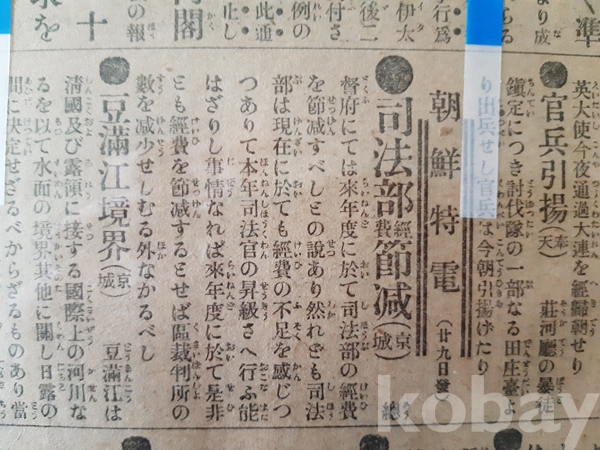 英大使今夜通過大連を經歸朝せり
●官兵引揚(奉天) 莊河廳の暴徒
鎭定につき討伐隊の一部なる田庄臺よ
り出兵せし官兵は今朝引揚げたり
朝鮮特電(廿九日發)
●司法部經費節减(京城) 總
督府にては來年度に於て司法部の經費
を節减すべしとの說あり然れども司法
部は現在に於ても經費の不足を感じつ
つありて本年司法官の昇級さへ行ふ能
はざりし事情なれば來年度に於て是非
とも經費を節减するとせば區裁判所の
數を减少せしむる外なかるべし
●豆滿江境界(京城) 豆滿江は
淸國及び露領に接する國際上の河川な
るを以て水面の境界其他に關し日露の
間に決定せざるべからざるものあり當
kobay